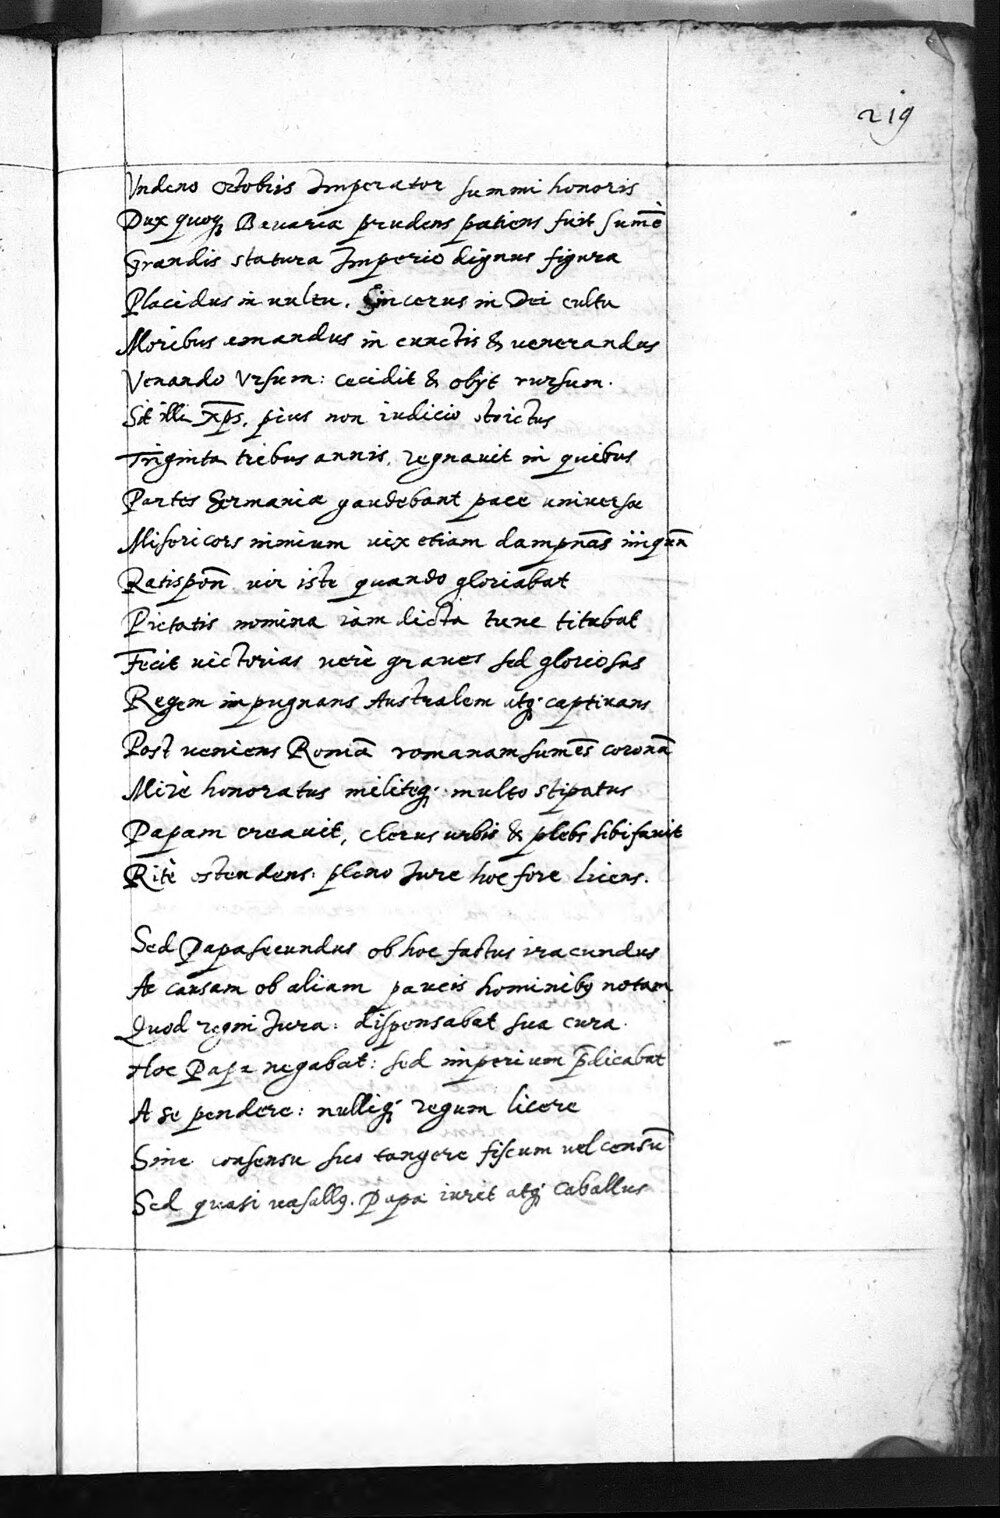 219
Vndeno octobris Imperator summi honoris
Dux quoq; Bauariæ prudens patiens fuit sumè
Grandis statura Imperio dignus figura
Placidus in uultu. Sincerus in Dei cultu
Moribus emandus in cunctis & uenerandus
Venando Vrsum: cecidit & obijt rursum.
Sit illi xp̄s, pius non iudicio strictus
Triginta tribus annis, regnauit in quibus
Partes Germaniæ gaudebant pace uniuersæ
Misericors nimium uix etiam dampnās iniquū
Ratispon̄ uir iste quando gloriabat
Pietatis nomina iam dicta tunc titubat
Fecit uictorias uerè graues sed gloriosas
Regem inpugnans Australem atq; captiuans
Post ueniens Romā romanam sumēs coronā
Mirè honoratus militeq; multo stipatus
Papam creauit, clerus urbis & plebs sibi fauit
Ritè ostendens: pleno Iure hoc fore licens.
Sed Papa secundus ob hoc factus iracundus
Ac causam ob aliam paucis hominibꝯ notam
Quod regni Iura: dispensabat sua cura.
Hoc Papa negabat: sed imperium p̄dicabat
A se pendere: nulliq; regum licere
Sine consensu suo tangere fiscum uel censū
Sed quasi uasallꝯ. Papæ iurit atq; caballus